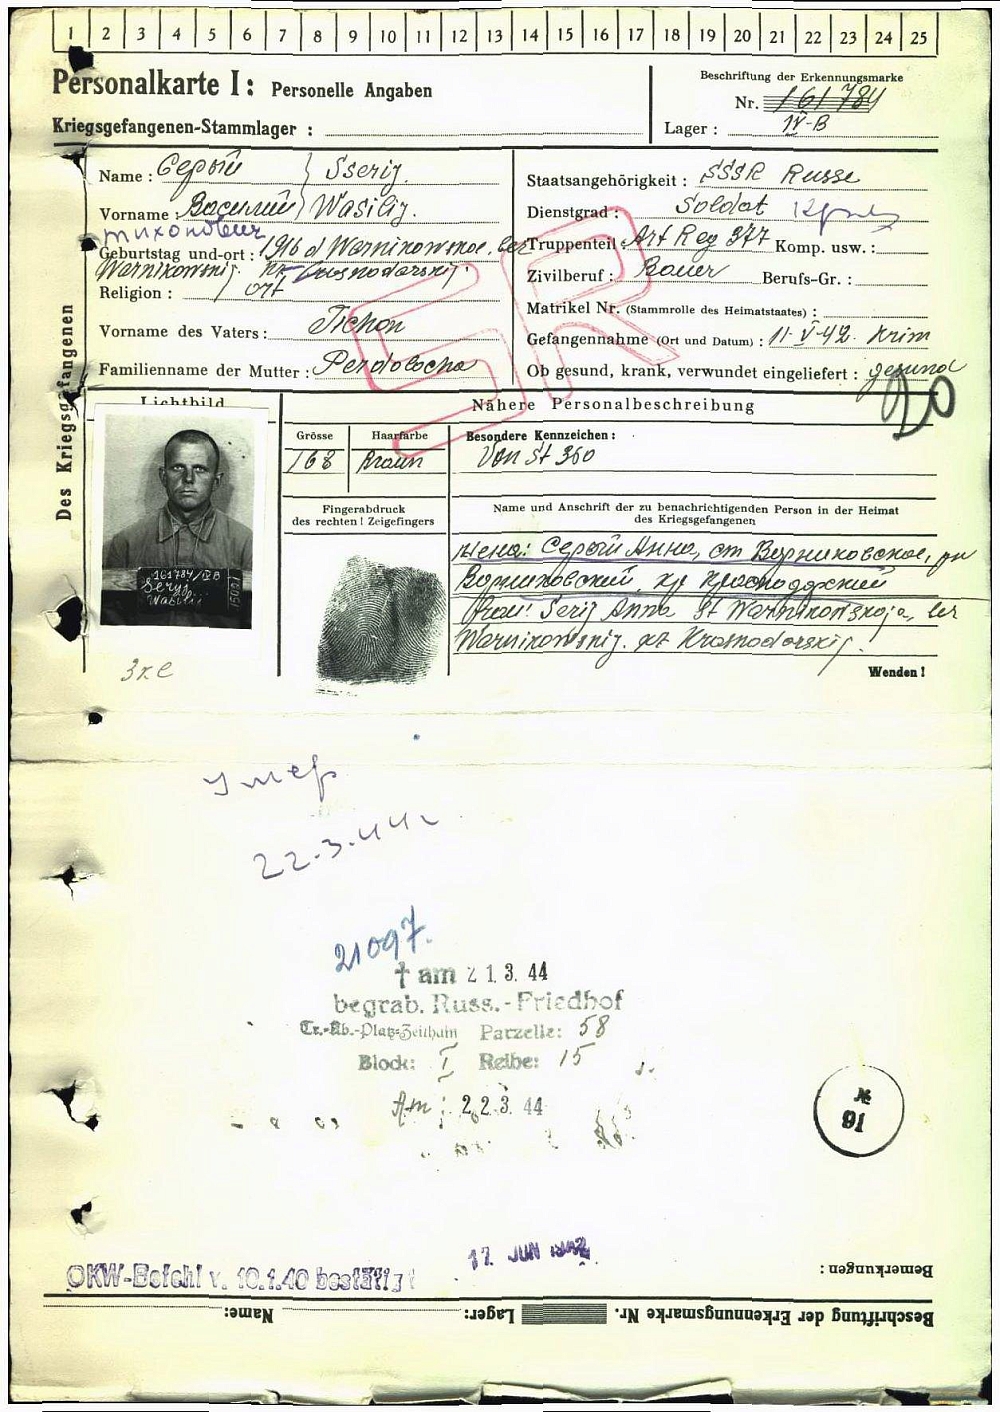 1 2 3 4 5 6 7 8 9 10 11 12 13 14 15 16 17 18 19 20 21 22 23 24 25
Personalkarte I: Personelle Angaben
Kriegsgefangenen-Stammlager :
Beschriftung der Erkennungsmarke
Nr. 161784
Lager : IV-B
Des Kriegsgefangenen
Name : Серый / Sserij.
Vorname : Василий / Wasilij.
Тихонович
Geburtstag und-ort : 1916 st Warnikowskoe, ber
Warnikowskij. kr Krasnodarskij.
Religion : / ort
Vorname des Vaters : Tichon
Familienname der Mutter :
Staatsangehörigkeit : SSSR Russe
Dienstgrad : Soldat
Truppenteil : Art Reg 377 Komp. usw. :
Zivilberuf : Bauer Berufs-Gr. :
Matrikel Nr. (Stammrolle des Heimatstaates) :
Gefangennahme (Ort und Datum) : 11-V-42. Krim
Ob gesund, krank, verwundet eingeliefert : gesund
SR
20
Lichtbild
Nähere Personalbeschreibung
Grösse
168
Haarfarbe
Braun
Besondere Kennzeichen :
Von St 360
Fingerabdruck
des rechten ! Zeigefingers
Name und Anschrift der zu benachrichtigenden Person in der Heimat
des Kriegsgefangenen
жена: Серый Анна, ст Варниковское, рн
Варниковский, кр Краснодарский
Frau: Serij Anna St Warnikowskoja, ber
Warnikowskij. kr Krasnodarskij.
Wenden !
161784/IVB
Seryj
Wasilij
Умер
22.3.44г
21097.
† am 21.3.44
begrab. Russ.-Friedhof
Tr.-Üb.-Platz-Zeithain Parzelle: 58
Block: I Reihe: 15
Am : 22.3.44
№
91
17. JUN 1942
OKW-Befehl v. 10.1.40 bestätigt
Bemerkungen :
Beschriftung der Erkennungsmarke Nr. Lager: Name: